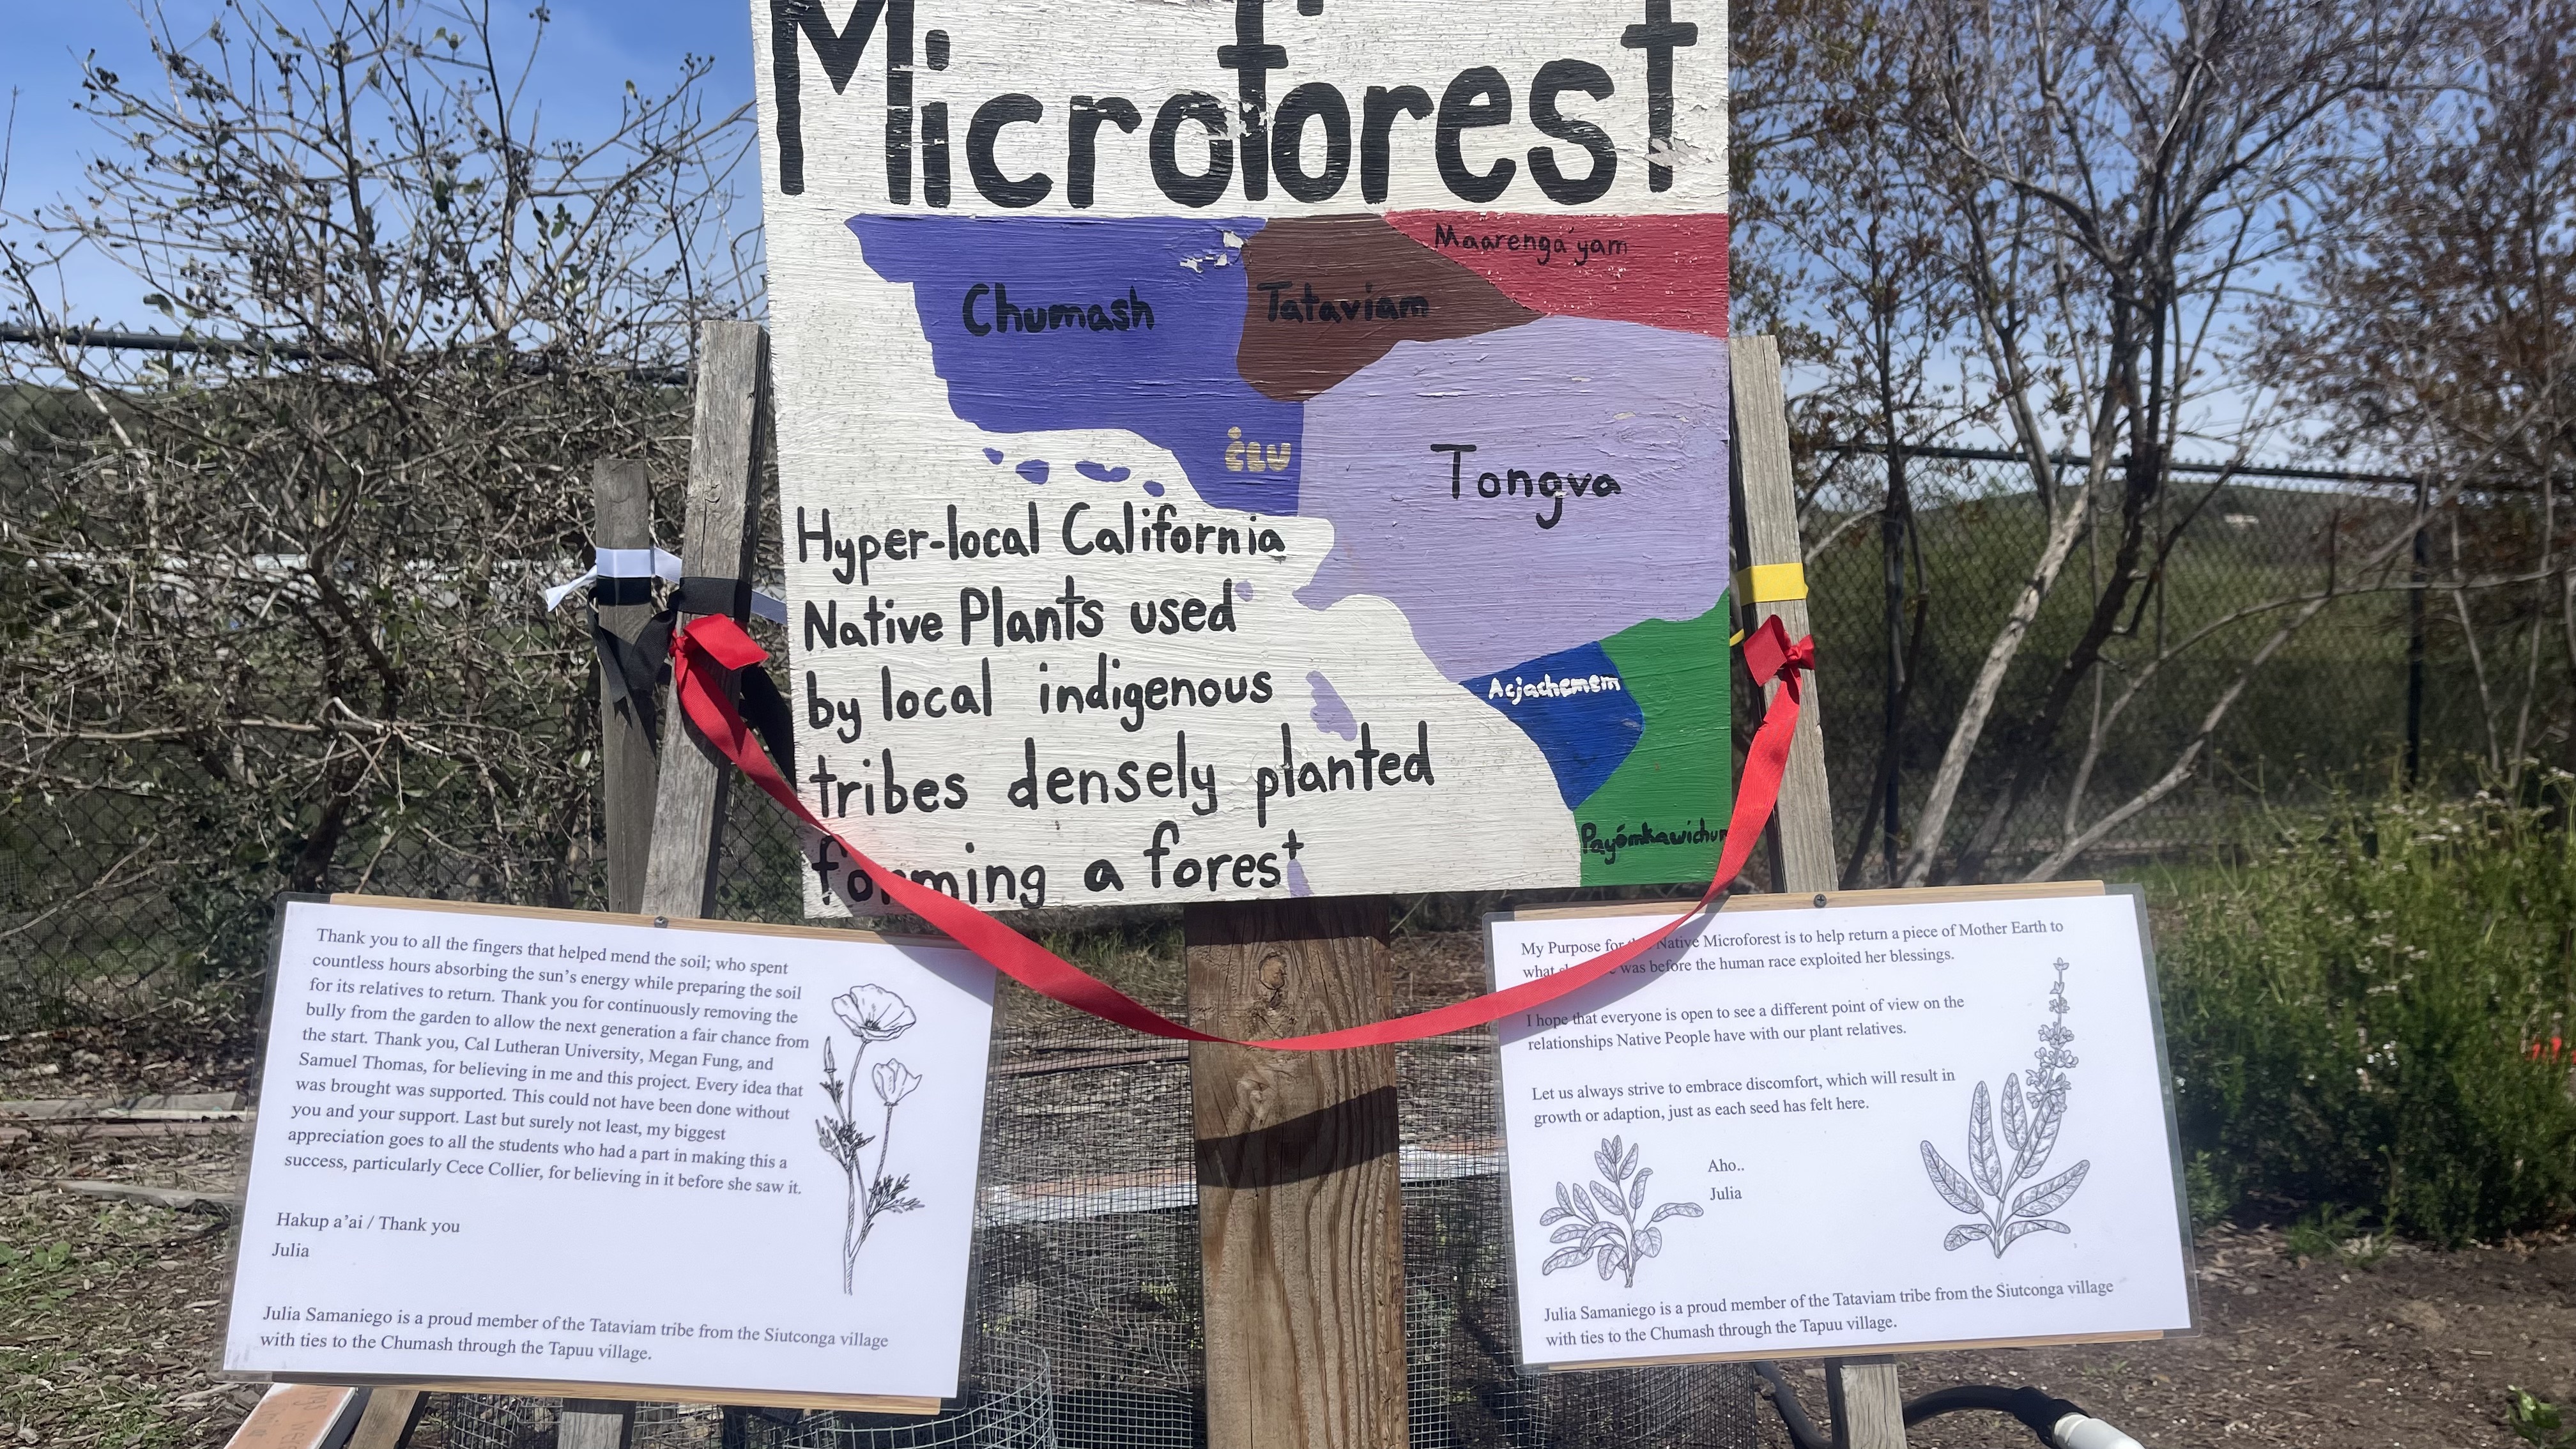 Microforest
Maarenga'yam
Chumash
Tataviam
CLU
Tongva
Acjachemem
Hyper-local California
Native Plants used
by local indigenous
tribes densely planted
forming a forest
Thank you to all the fingers that helped mend the soil; who spent
countless hours absorbing the sun's energy while preparing the soil
for its relatives to return. Thank you for continuously removing the
bully from the garden to allow the next generation a fair chance from
the start. Thank you, Cal Lutheran University, Megan Fung, and
Samuel Thomas, for believing in me and this project. Every idea that
was brought was supported. This could not have been done without
you and your support. Last but surely not least, my biggest
appreciation goes to all the students who had a part in making this a
success, particularly Cece Collier, for believing in it before she saw it.
Hakup a'ai / Thank you
Julia
Julia Samaniego is a proud member of the Tataviam tribe from the Siutconga village
with ties to the Chumash through the Tapuu village.
My Purpose for Native Microforest is to help return a piece of Mother Earth to
what was before the human race exploited her blessings.
I hope that everyone is open to see a different point of view on the
relationships Native People have with our plant relatives.
Let us always strive to embrace discomfort, which will result in
growth or adaption, just as each seed has felt here.
Aho..
Julia
Julia Samaniego is a proud member of the Tataviam tribe from the Siutconga village
with ties to the Chumash through the Tapuu village.